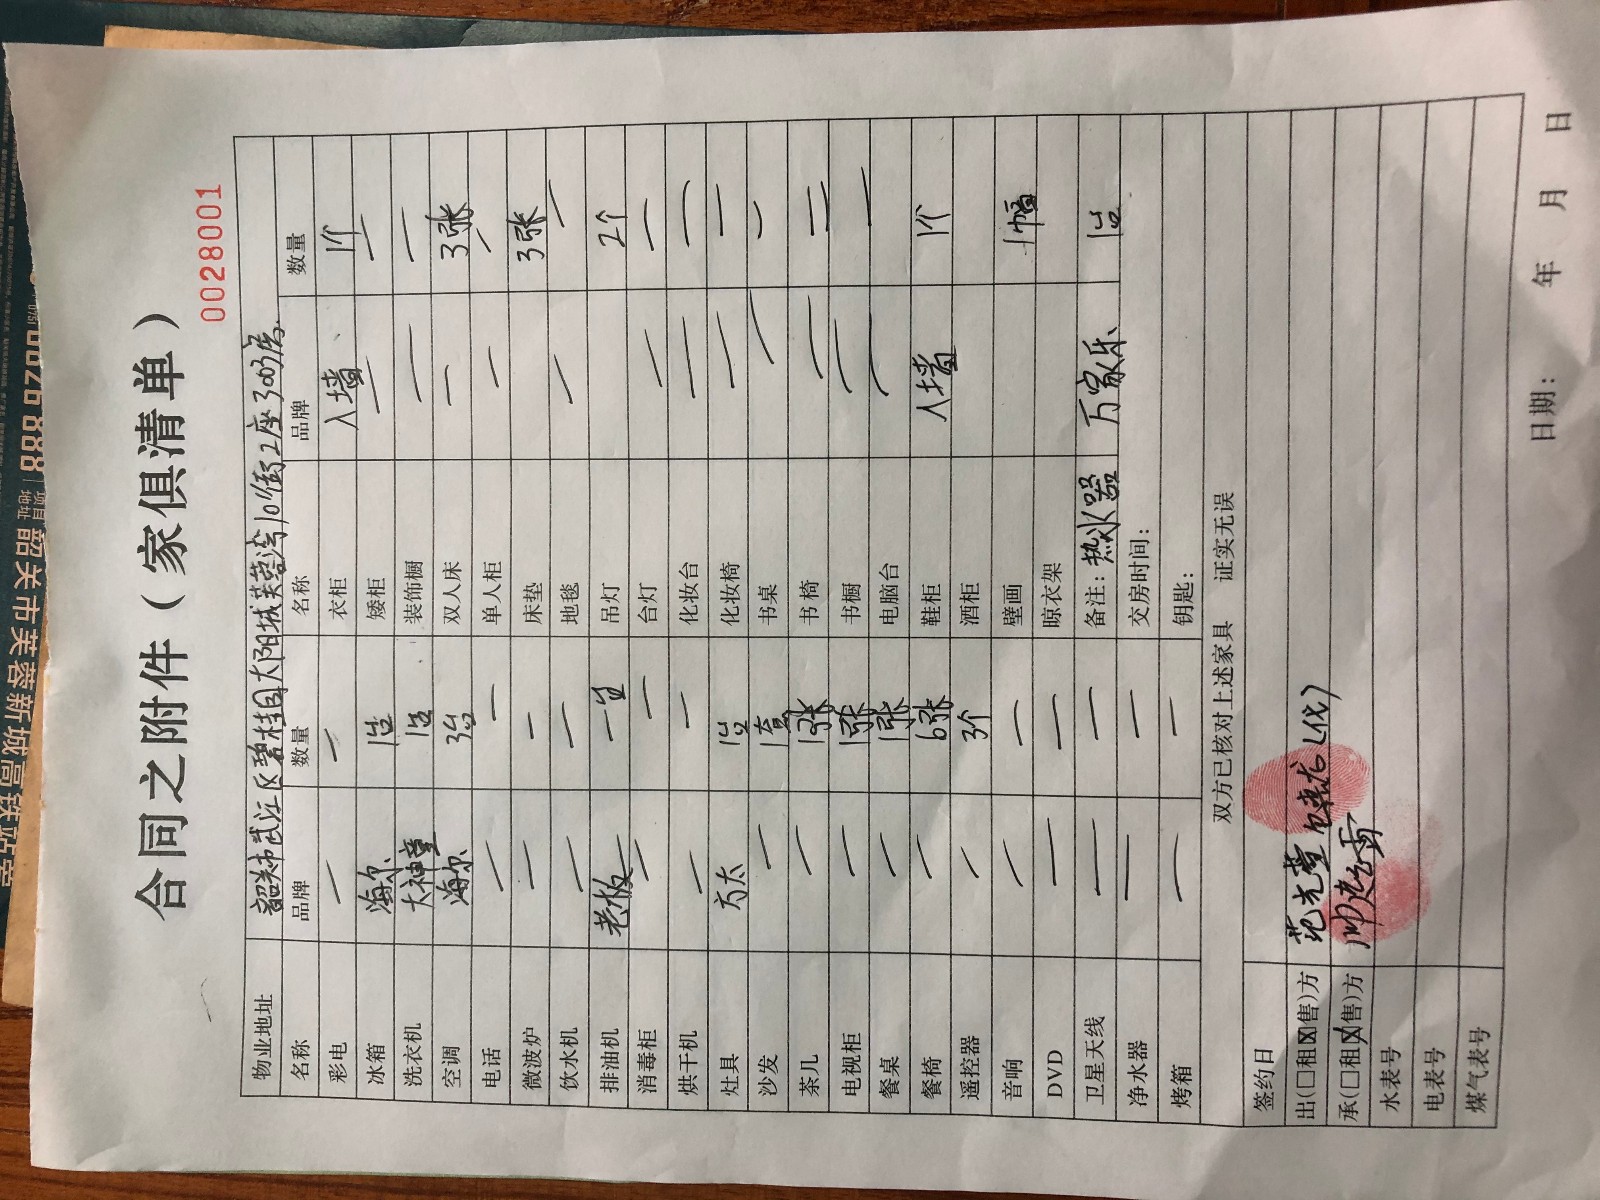 合同之附件（家俱清单）
0028001
物业地址 韶关市武江区碧桂园太阳城芙蓉湾10街2座3003房.
名称 品牌 数量 名称 品牌 数量
彩电 — — 衣柜 入墙 1个
冰箱 海尔 1台 矮柜 — —
洗衣机 大神童 1台 装饰橱 — —
空调 海尔 3台 双人床 — 3张
电话 — — 单人柜 — —
微波炉 — — 床垫 3张
饮水机 — — 地毯 — —
排油机 老板 一 吊灯 2个
消毒柜 — — 台灯 — —
烘干机 — — 化妆台 — —
灶具 方太 1台 化妆椅 — —
沙发 — 1套 书桌 — —
茶几 — 1张 书椅 — —
电视柜 — 1张 书橱 — —
餐桌 — 1张 电脑台 — —
餐椅 — 6张 鞋柜 入墙 1个
遥控器 — 3个 酒柜
音响 — — 壁画 1幅
DVD — — 晾衣架
卫星天线 — — 备注：热水器 万家乐 1台
净水器 — — 交房时间：
烤箱 — — 钥匙：
双方已核对上述家具 证实无误
签约日
出(□租☒售)方 范光莹 (代)
承(□租☒售)方
水表号
电表号
煤气表号
日期： 年 月 日
0028 888
项目地址
韶关市芙蓉新城高铁站旁